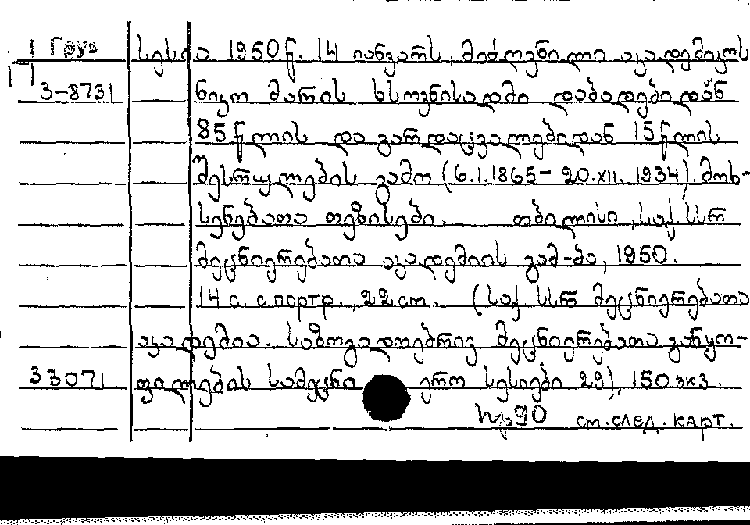 1 Груз სესია 1950 წ. 14 იანვარს, მიძღვნილი აკადემიკოს
3-8731 ნიკო მარის ხსოვნისადმი დაბადებიდან
85 წლის და გარდაცვალებიდან 15 წლის
შესრულების გამო (6.I.1865- 20.XII.1934). მოხ-
სენებათა თეზისები. თბილისი, საქ. სსრ
მეცნიერებათა აკადემიის გამ-ბა, 1950.
14 с. с портр., 22 см. (საქ. სსრ მეცნიერებათა
აკადემია. საზოგადოებრივ მეცნიერებათა განყო-
33071 ფილების სამეცნი ერო სესიები 29), 150 экз.
90 см. след. карт.